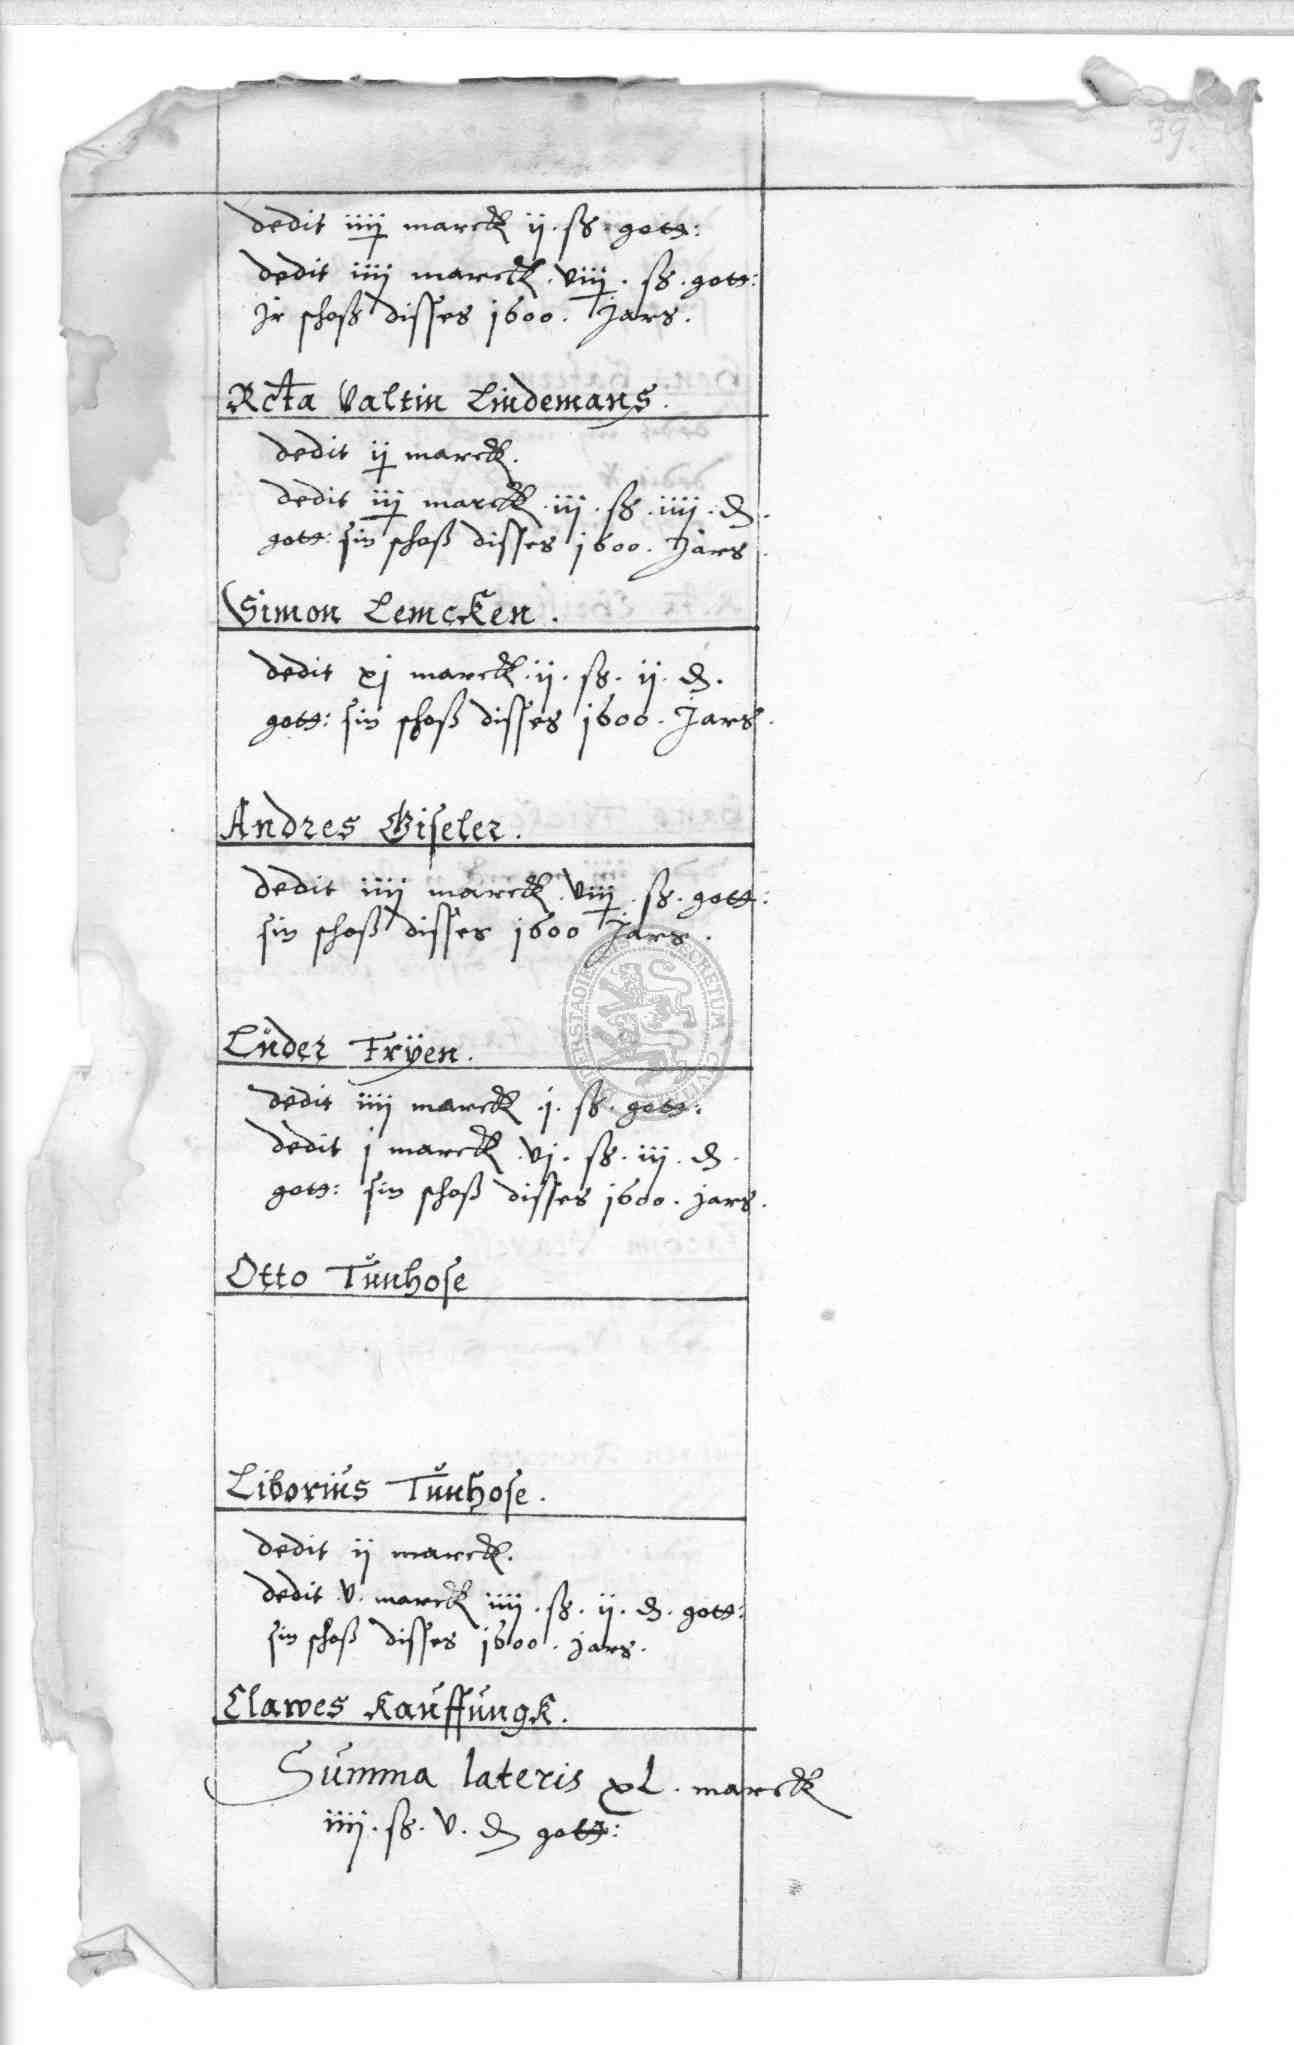 39.
dedit iiij marck ij. ß. gott:
dedit iiij marck. viij. ß. gott:
Jr schoß disses 1600. Jars.
Rcta Valtin Lindemans.
dedit ij marck.
dedit iij marck. iij. ß. iiij. d.
gott: sin schoß disses 1600. Jars.
Simon Lemcken.
dedit xj marck. ij. ß. ij. d.
gott: sin schoß disses 1600. Jars.
Andres Giseler.
dedit iiij marck. viij. ß. gott:
sin schoß disses 1600 Jars.
Lüder Frÿen.
dedit iiij marck. j. ß. gott:
dedit j marck. vj. ß. iij. d.
gott: sin schoß disses 1600. jars.
Otto Tŭnhose
Liboriŭs Tŭnhose.
dedit ij marck.
dedit v. marck iiij. ß. ij. d. gott:
sin schoß disses 1600. jars.
Clawes Kaŭffŭngk.
Sŭmma lateris xl. marck
iiij. ß. v. d gott:
SECRETUM CIVI